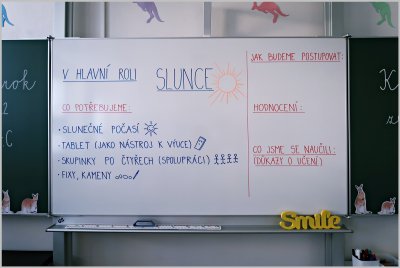 V HLAVNÍ ROLI SLUNCE
CO POTŘEBUJEME:
• SLUNEČNÉ POČASÍ
• TABLET (JAKO NÁSTROJ K VÝUCE)
• SKUPINKY PO ČTYŘECH (SPOLUPRÁCI)
• FIXY, KAMENY
JAK BUDEME POSTUPOVAT:
HODNOCENÍ:
CO JSME SE NAUČILI:
(DŮKAZY O UČENÍ)
Smile